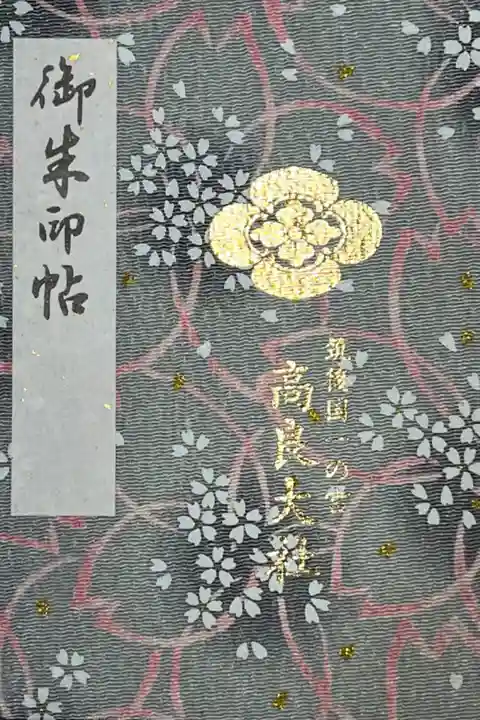 筑後国一の宮
高良大社
御朱印帖